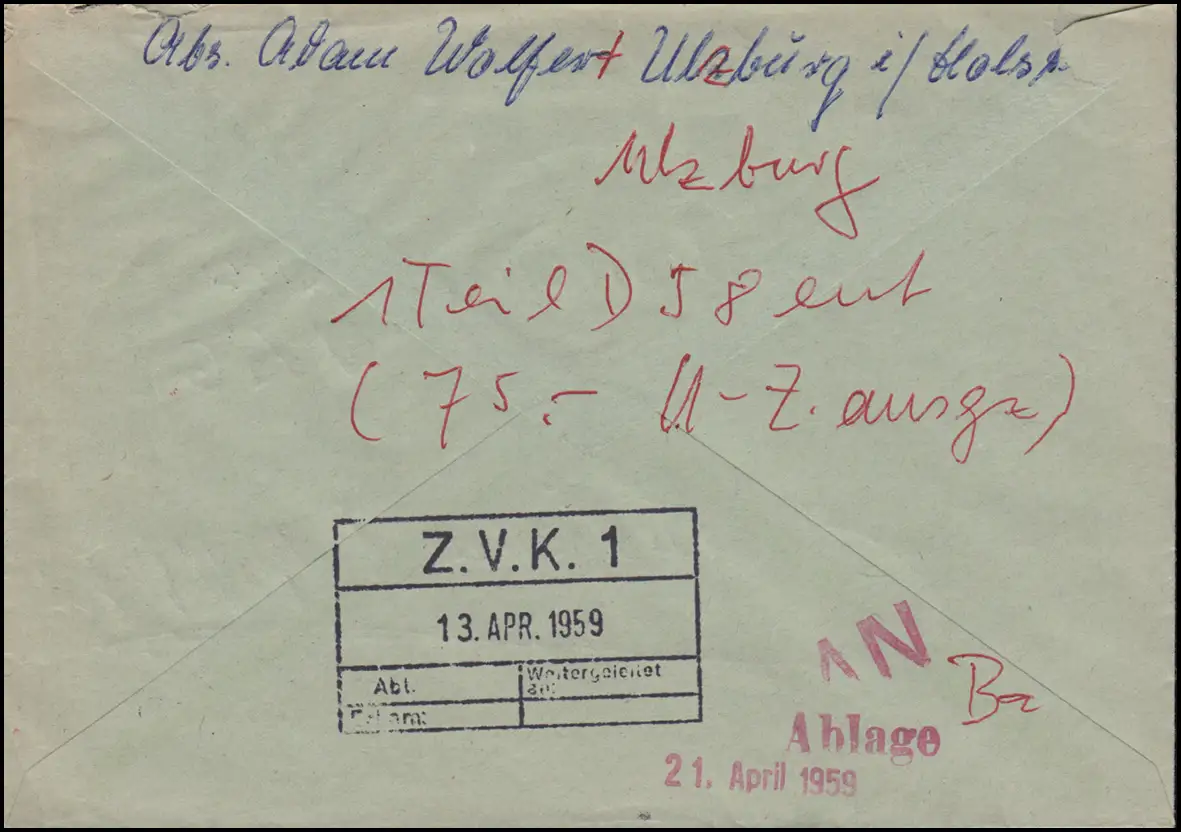 Abs. Adam Wolfert Ulzburg i/Holst.
Ulzburg
1 Teil D 58 ent
(75.- U-Z. ausgz)
Z.V.K. 1
13. APR. 1959
Abt.
Weitergeleitet
an:
AN
Ablage
21. April 1959